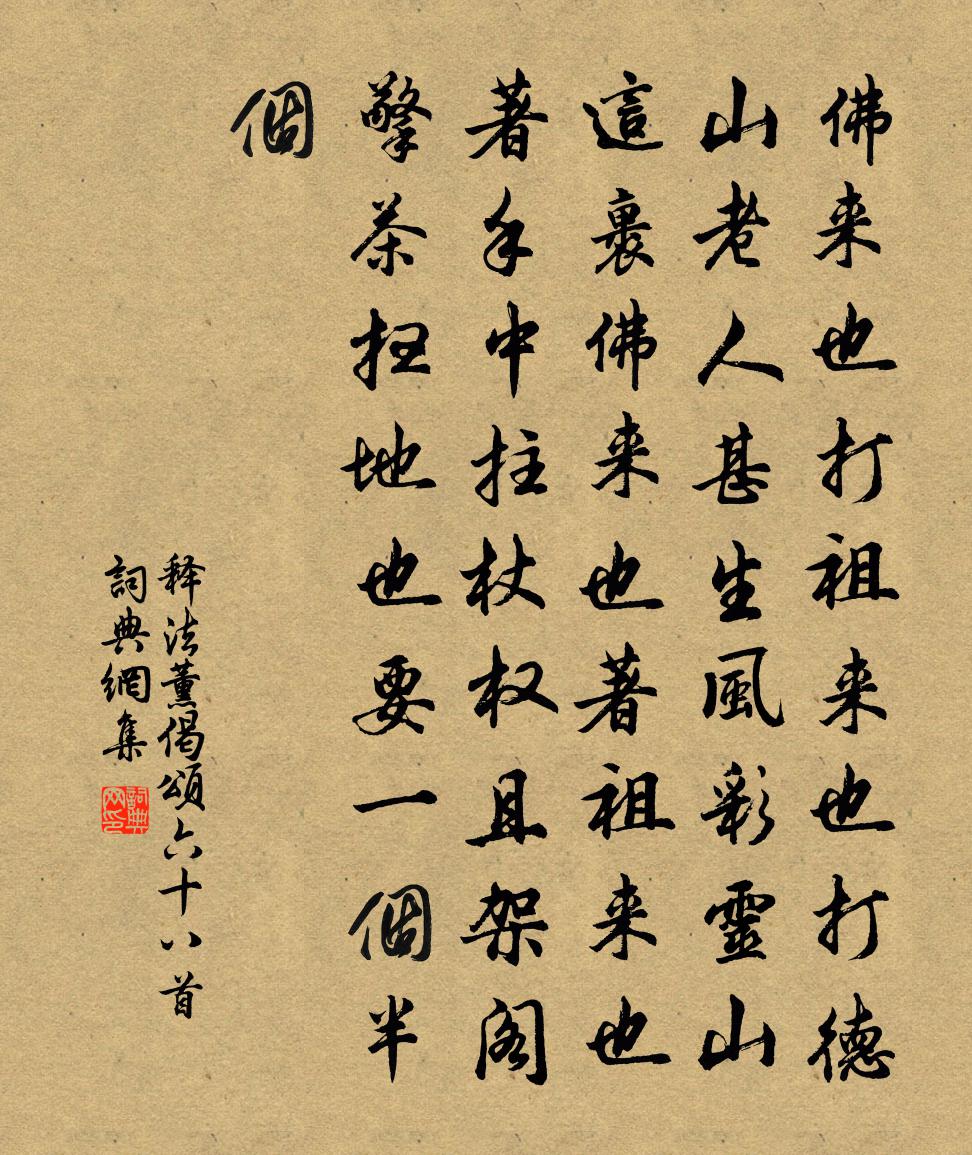 佛来也打祖来也打德
山老人甚生風彩靈山
這裏佛来也著祖来也
著手中拄杖权且架阁
擎茶扫地也要一個半
個
释法薰偈頌六十八首
詞典網集
詞典网印